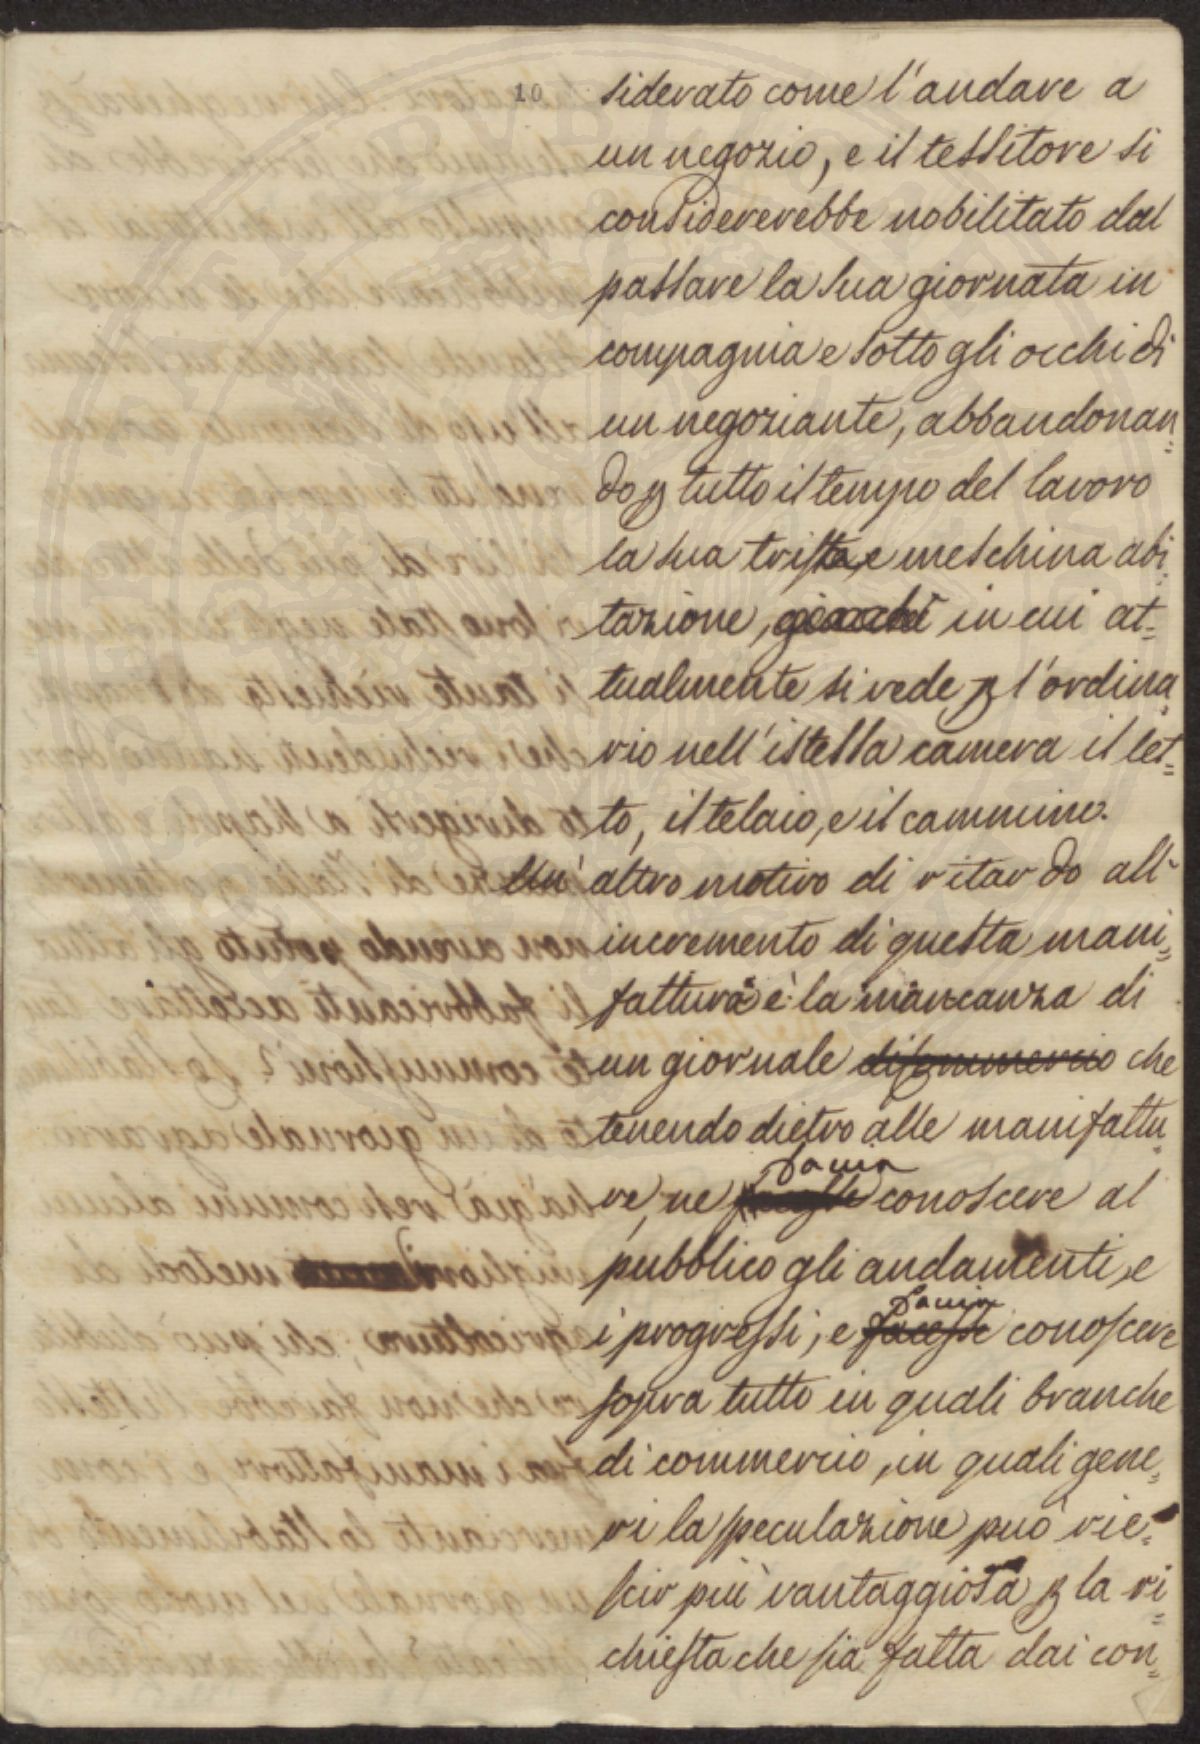 10
siderato come l'andare a
un negozio, e il tessitore si
considererebbe nobilitato dal
passare la sua giornata in
compagnia e sotto gli occhi di
un negoziante, abbandonan=
do p tutto il tempo del lavoro
la sua trista, e meschina abi=
tazione, in cui at=
tualmente si vede p l'ordina=
rio nell'istessa camera il let=
to, il telaio, e il cammino.
Un' altro motivo di ritardo all'
incremento di questa mani=
fattura è la mancanza di
un giornale di commercio che
tenendo dietro alle manifattu=
re, ne faccia conoscere al
pubblico gli andamenti, e
i progressi, e faccia facesse conoscere
sopra tutto in quali branche
di commercio, in quali gene=
ri la speculazione può rie=
scir più vantaggiosa p la ri=
chiesta che sia fatta dai con=